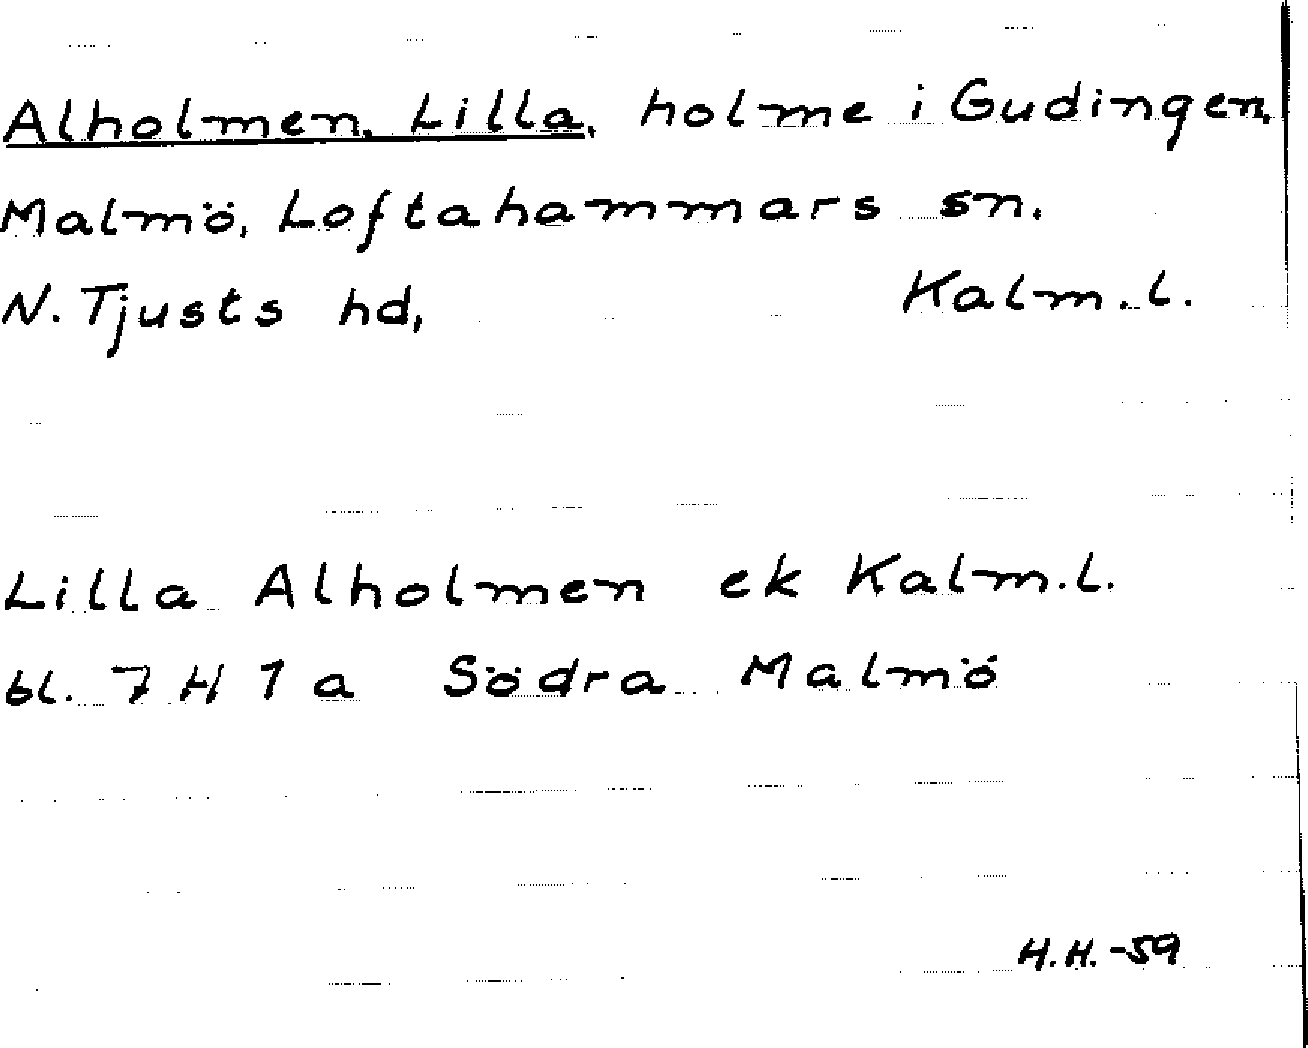 Alholmen, Lilla, holme i Gudingen,
Malmö, Loftahammars sn.
N. Tjusts hd, Kalm. l.
Lilla Alholmen ek Kalm. l.
bl. 7 H 1 a Södra Malmö
H.H. -59